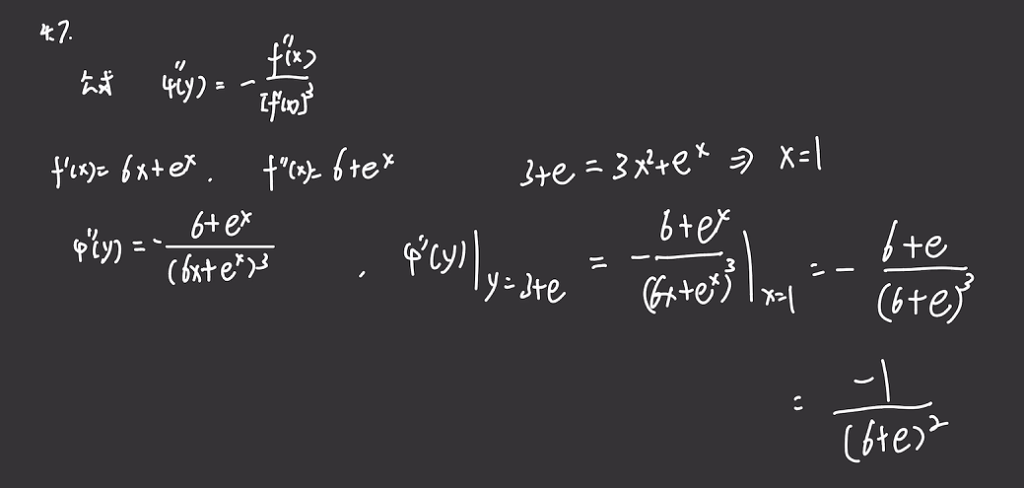 4.7.
公式 φ''(y) = - f''(x) / [f'(x)]³
f'(x) = 6x+eˣ. f''(x) = 6+eˣ 3+e = 3x²+eˣ ⇒ x=1
φ''(y) = - (6+eˣ) / (6x+eˣ)³ , φ''(y)|y=3+e = - (6+eˣ) / (6x+eˣ)³ |x=1 = - (6+e) / (6+e)³
= -1 / (6+e)²